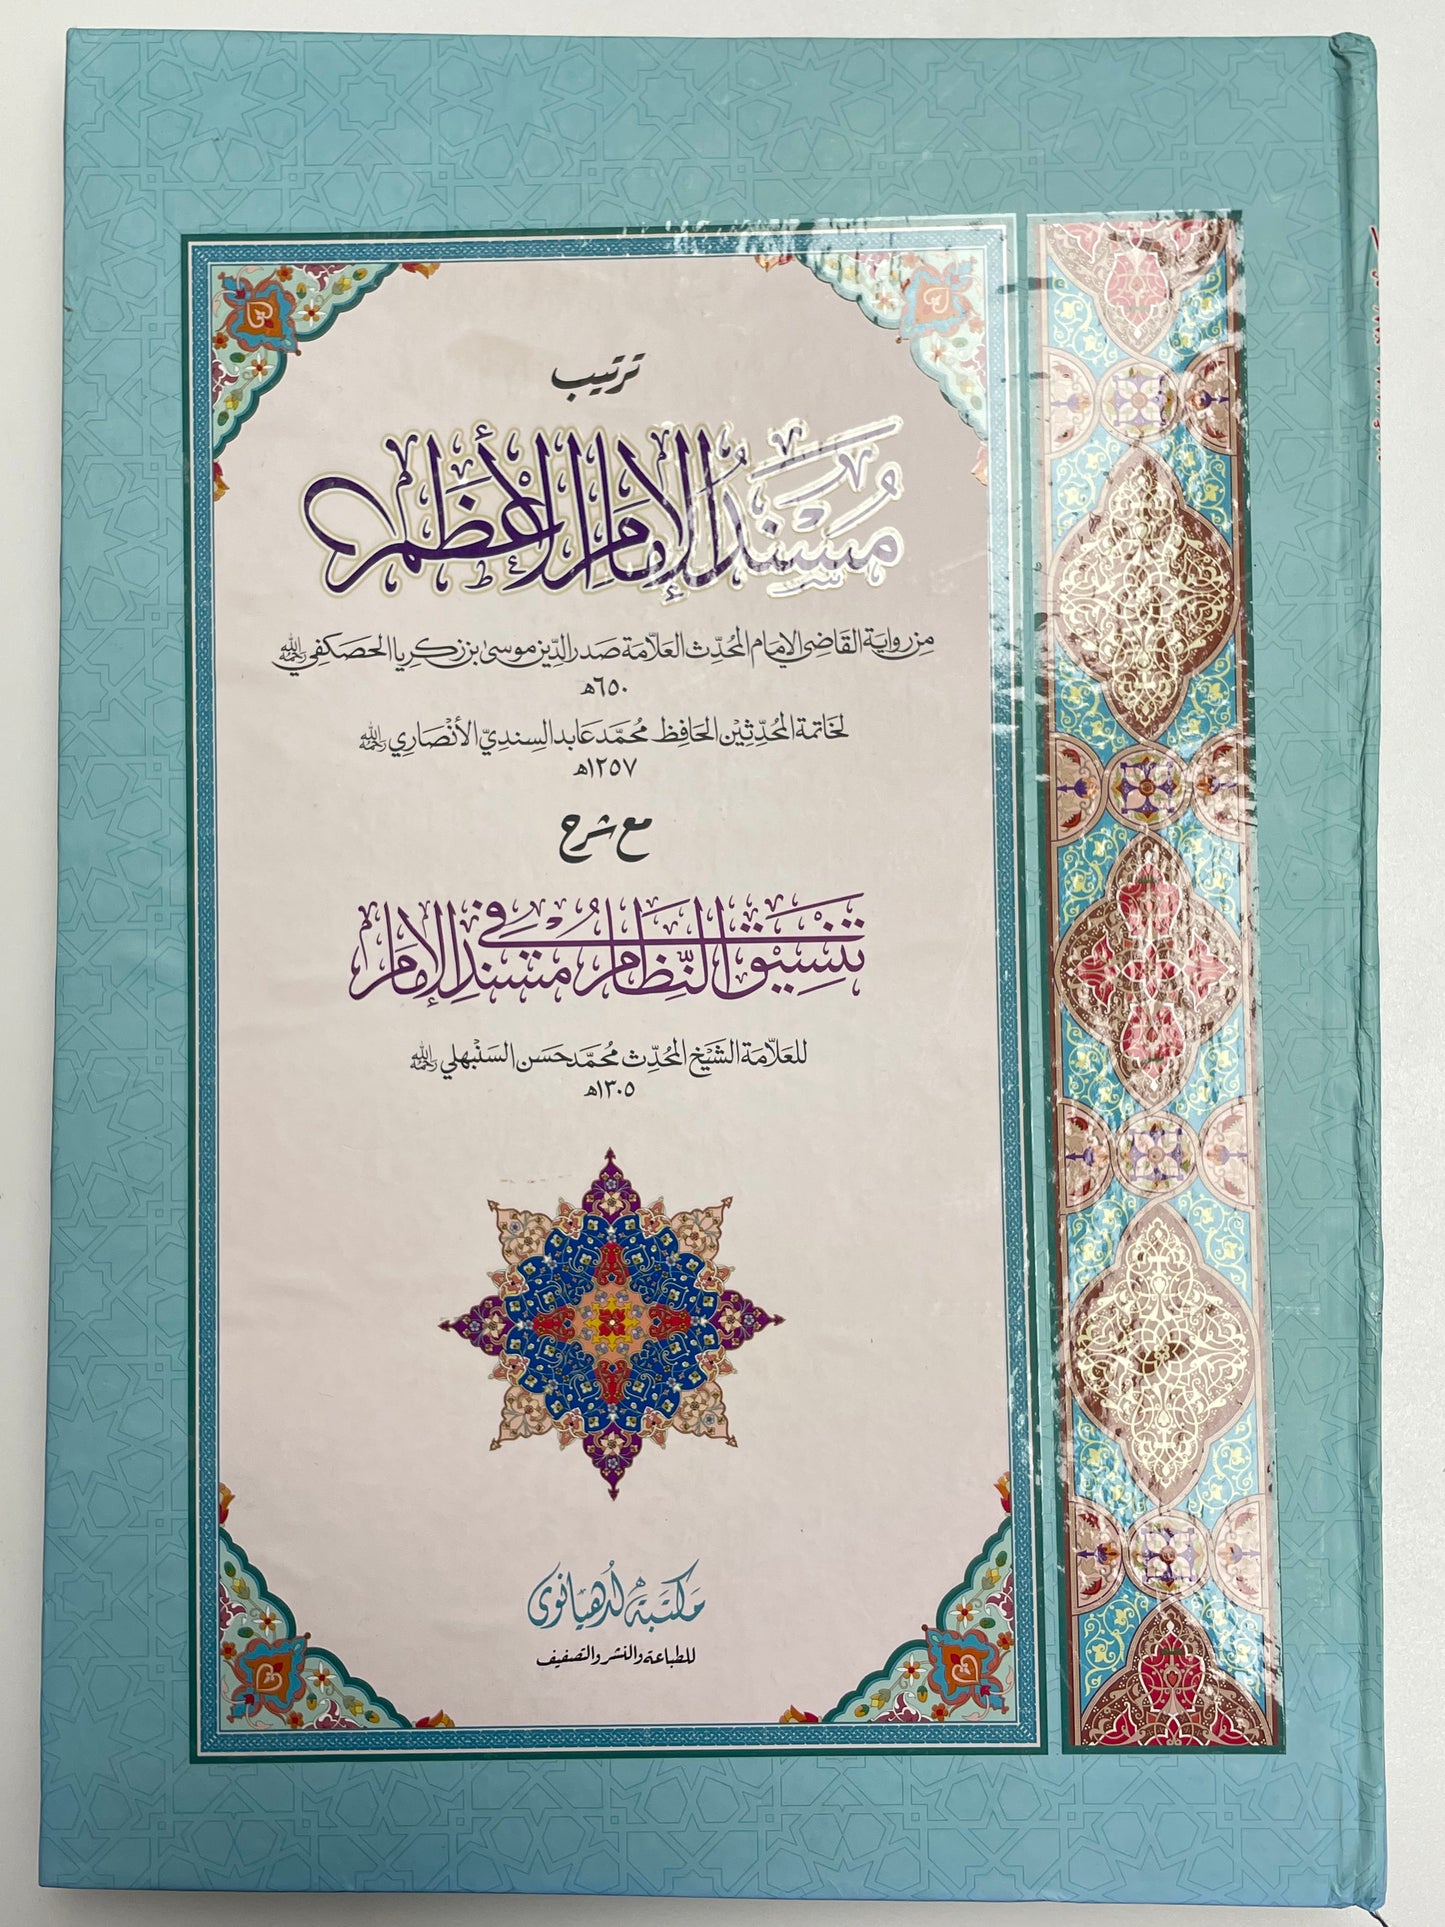 ترتيب
مُسْنَدُ الإِمَامِ الأَعْظَمِ
مِن رواية القاضي الإمام المُحدِّث العلّامة صدر الدِّين موسىٰ بن زكريا الحصكفي رحمه الله
٦٥٠ھ
لخَاتمة المُحدِّثِيْن الحَافِظ مُحمَّد عَابد السِنديّ الأنْصَاري رحمه الله
١٢٥٧ھ
مع شرح
تَنْسِيْقُ النِّظَامِ فِي مُسْنَدِ الإِمَامِ
للعَلاّمَة الشَيْخ المُحُدِّث مُحمَّد حَسَن السَنْبهلي رحمه الله
١٣٠٥ھ
مَكتَبَةْ لُدْھِیَانوی
للطباعة والنشر والتصفيف